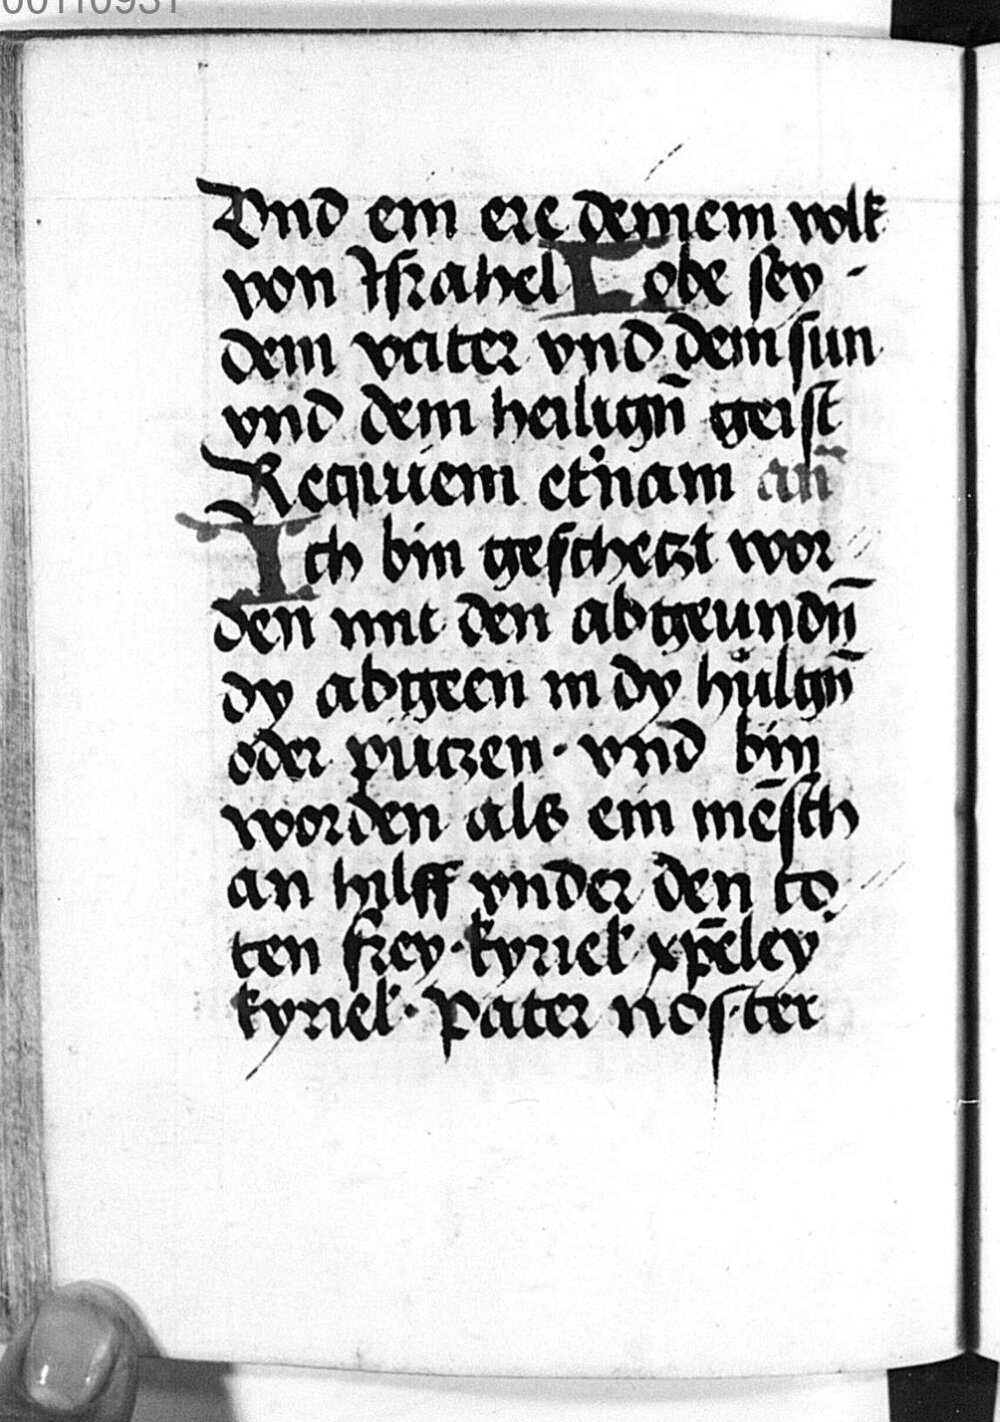 Vnd ein ere deinem volk
von Jsrahel Lobe sey ·
dem vater vnd dem sun
vnd dem heilign̄ geist
Requiem et'nam an̄
Ich bin geschetzt wor
den mit den abgeundn̄
dy abgeen in dy hülgn̄
oder putzen · vnd bin
worden als ein mēsch
an hilff vnder den to
ten frey · kyriel' xp̄eley
kyriel' · Pater noster